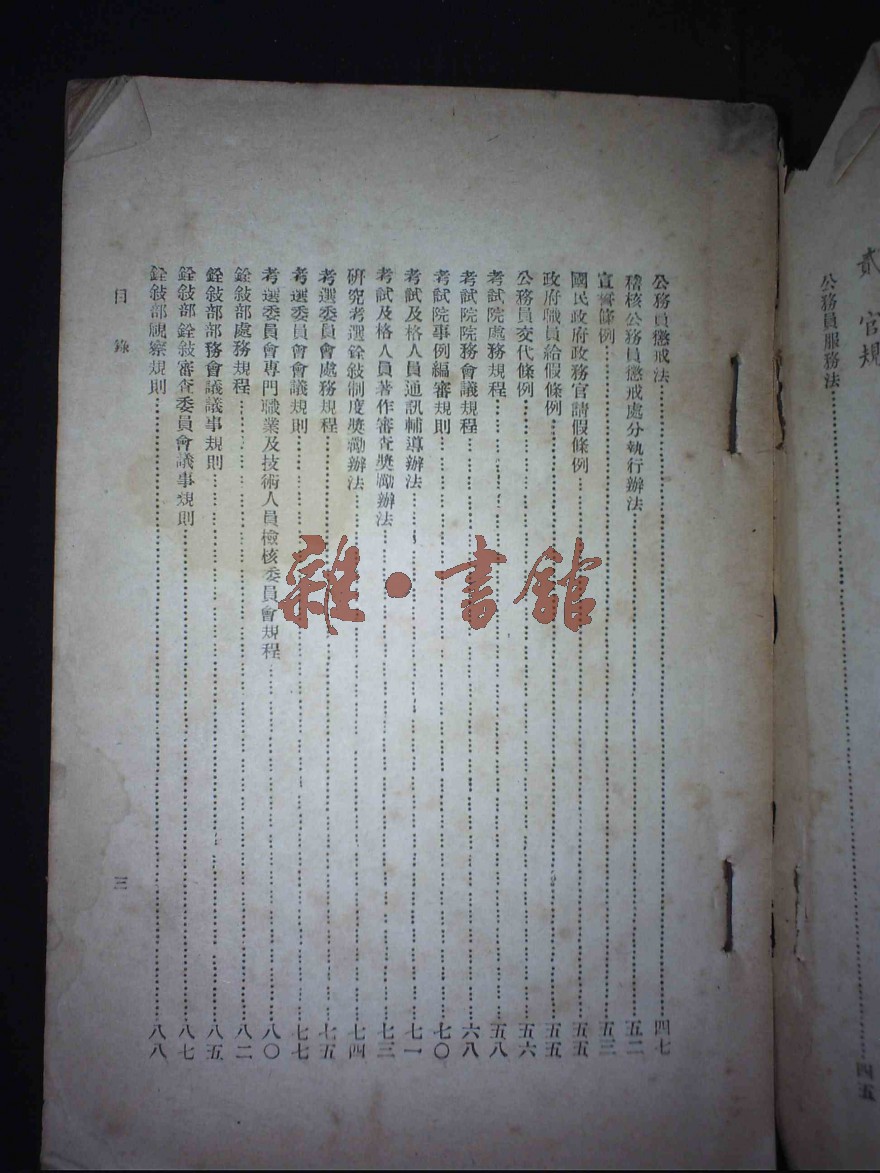 貳 官規
公務員服務法……四五
公務員懲戒法……四七
稽核公務員懲戒處分執行辦法……五二
宣誓條例……五三
國民政府政務官請假條例……五五
政府職員給假條例……五五
公務員交代條例……五六
考試院處務規程……五八
考試院院務會議規程……六八
考試院事例編審規則……七〇
考試及格人員通訊輔導辦法……七一
考試及格人員著作審查獎勵辦法……七三
研究考選銓敍制度獎勵辦法……七四
考選委員會處務規程……七五
考選委員會會議規則……七七
考選委員會專門職業及技術人員檢核委員會規程……八〇
銓敍部處務規程……八二
銓敍部部務會議議事規則……八五
銓敍部銓敍審查委員會議事規則……八七
銓敍部視察規則……八八
目錄
三
雜·書館